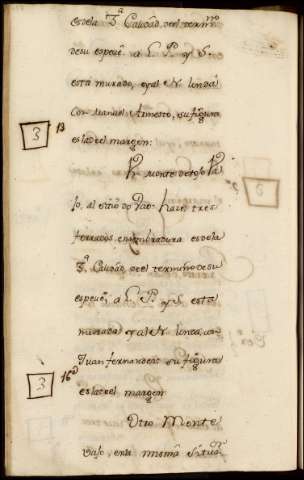 es dela 3ª Calidâd, de el termº
de su especê: a L. P. y S.
està murado, y al N. linda
con Manuel Armesto, su figura
es la del margen:
3 13
Monte de tojo
lo, al sitio do
hace tres
ferrados, en sembradura es de la
3ª Calidâd, de el termino de su
especê, a L. P. y S. està
murada y al N. linda con
Juan fernandez su figura
es la del margen
3 16
Otro Monte
Bajo, en la misma situaon